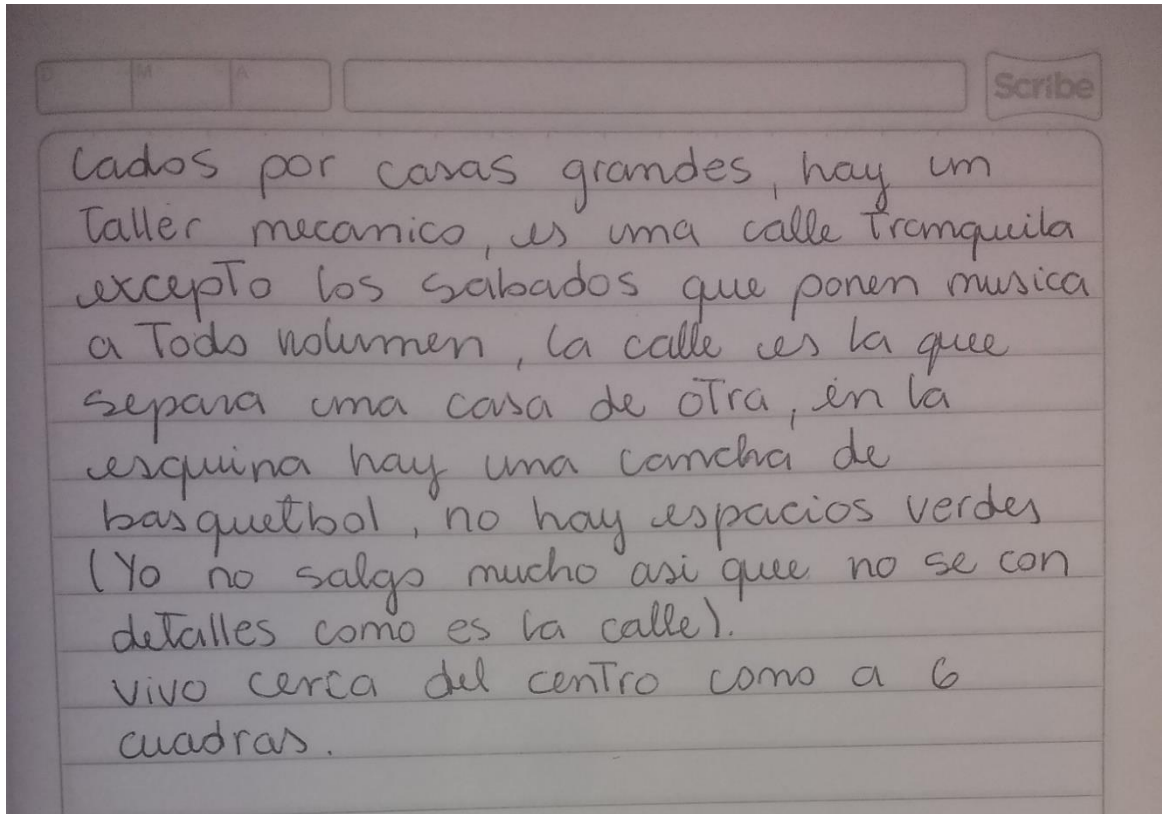 D M A
Scribe
lados por casas grandes, hay un
Taller mecanico, es una calle Tranquila
excepto los sabados que ponen musica
a Todo volumen, la calle es la que
separa una casa de otra, en la
esquina hay una cancha de
basquetbol, no hay espacios verdes
(Yo no salgo mucho asi que no se con
detalles como es la calle).
vivo cerca del centro como a 6
cuadras.